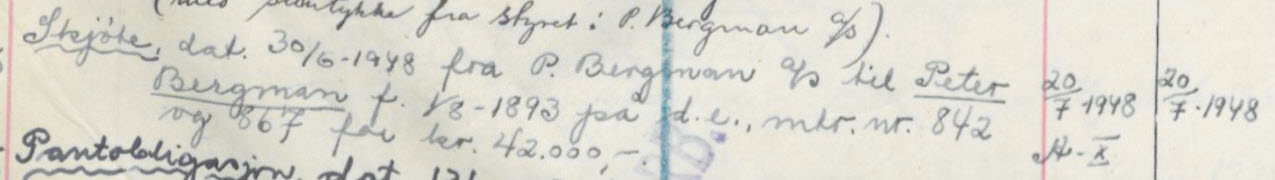 (med samtykke fra styret i P. Bergman A/S).
Skjøte, dat. 30/6-1948 fra P. Bergman A/S til Peter
Bergman f. 1/8-1893 på d.e., mtr. nr. 842
og 867 for kr. 42.000,-.
20/7-1948
A-X
20/7-1948
Pantobligasjon, dat.